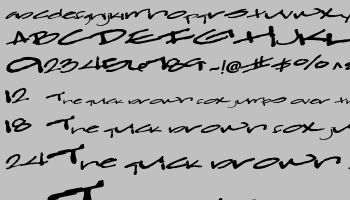 abcdefghijklmnopqrstuvwxy
ABCDEFGHIJKL
0123456789.,!@#$%^
12 The quick brown fox jumps over th
18 The quick brown fox ju
24 The quick brown
T